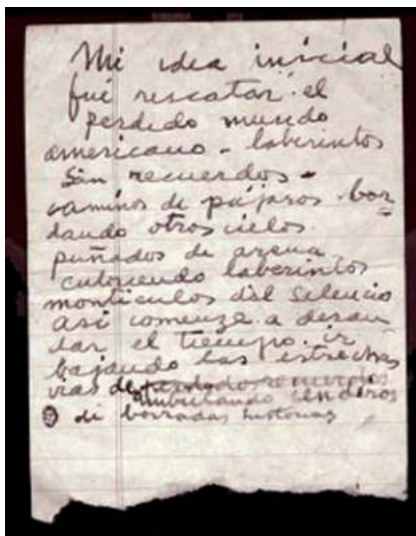 Mi idea inicial
fué rescatar el
perdido mundo
americano - laberintos
sin recuerdos -
caminos de pájaros bor
dando otros cielos.
puñados de arena
cubriendo laberintos
montículos del silencio
así comenze a desan
dar el tiempo. ir
bajando las estrechas
vias de
ambulando senderos
de borradas historias